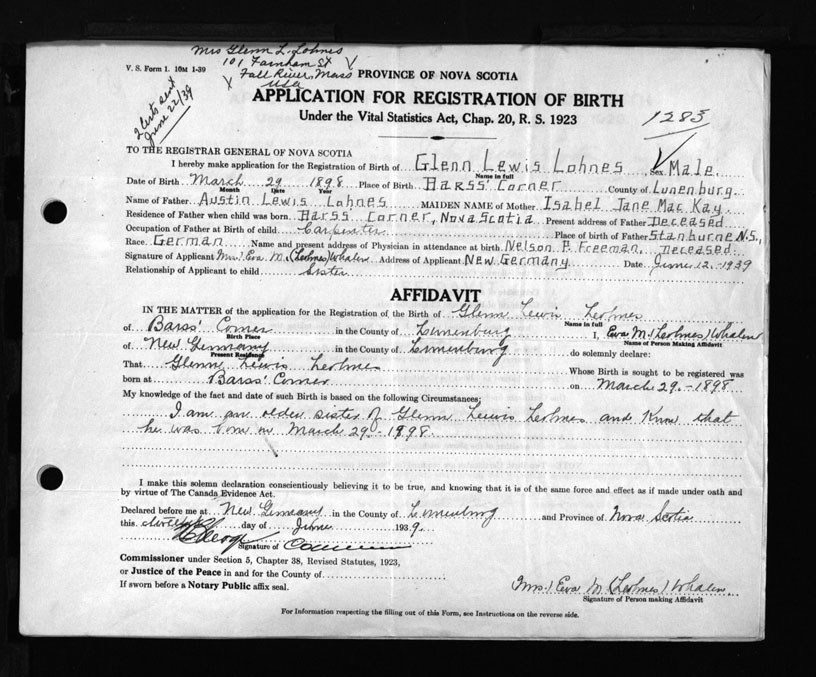 Mrs Glenn L. Lohnes
101 Farnham St
V. S. Form 1. 10M 1-39
X Fall River, Mass
USA
PROVINCE OF NOVA SCOTIA
2 certs sent
June 22/39
APPLICATION FOR REGISTRATION OF BIRTH
Under the Vital Statistics Act, Chap. 20, R. S. 1923
1283
TO THE REGISTRAR GENERAL OF NOVA SCOTIA
I hereby make application for the Registration of Birth of Glenn Lewis Lohnes Sex Male.
Name in full
Date of Birth March 29 1898 Place of Birth Barss' Corner County of Lunenburg.
Month Date Year
Name of Father Austin Lewis Lohnes MAIDEN NAME of Mother Isabel Jane Mac Kay
Residence of Father when child was born Barss Corner, Nova Scotia Present address of Father Deceased
Occupation of Father at Birth of child Carpenter Place of birth of Father Stanburne N.S.,
Race German Name and present address of Physician in attendance at birth Nelson P. Freeman, Deceased
Signature of Applicant Mrs) Eva M. (Lohnes) Whalen Address of Applicant New Germany Date June 12.-1939
Relationship of Applicant to child Sister
AFFIDAVIT
IN THE MATTER of the application for the Registration of the Birth of Glenn Lewis Lohnes
Name in full
of Barss' Corner in the County of Lunenburg I, Eva M. (Lohnes) Whalen
Birth Place Name of Person Making Affidavit
of New Germany in the County of Lunenburg do solemnly declare:
Present Residence
That Glenn Lewis Lohnes Whose Birth is sought to be registered was
born at Barss' Corner on March 29.-1898
My knowledge of the fact and date of such Birth is based on the following Circumstances:
I am an older sister of Glenn Lewis Lohnes and know that
he was born on March 29-1898.
I make this solemn declaration conscientiously believing it to be true, and knowing that it is of the same force and effect as if made under oath and
by virtue of The Canada Evidence Act.
Declared before me at New Germany in the County of Lunenburg and Province of Nova Scotia
this day of June 1939.
Signature of
Commissioner under Section 5, Chapter 38, Revised Statutes, 1923,
or Justice of the Peace in and for the County of
If sworn before a Notary Public affix seal.
Mrs) Eva M (Lohnes) Whalen
Signature of Person making Affidavit
For Information respecting the filling out of this Form, see Instructions on the reverse side.